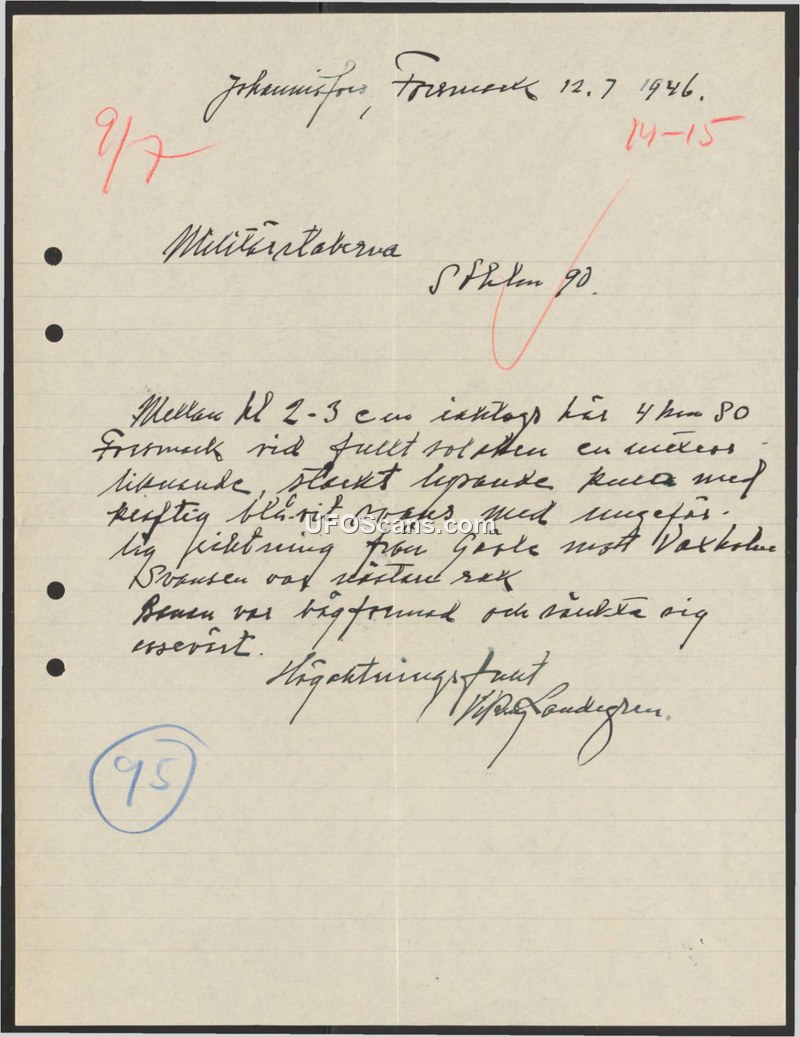 Johannisfors, Forsmark 12.7 1946.
9/7
14-15
Militärstaberna
Sthlm 90.
Mellan kl 2-3 em iakttogs här 4 km SO
Forsmark vid fullt solsken en meteor-
liknande, starkt lysande kula med
kraftig blå-vit svans med ungefär-
lig riktning från Gävle mot Vaxholm
Svansen var nästan rak
Banan var bågformad och sänkte sig
Högaktningsfullt
Landegren.
95
UFOScans.com